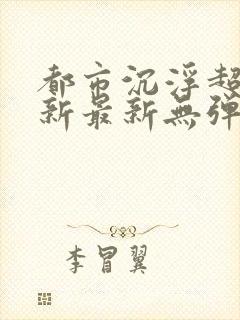 都市沉浮超
新最新無弹
李冒翼